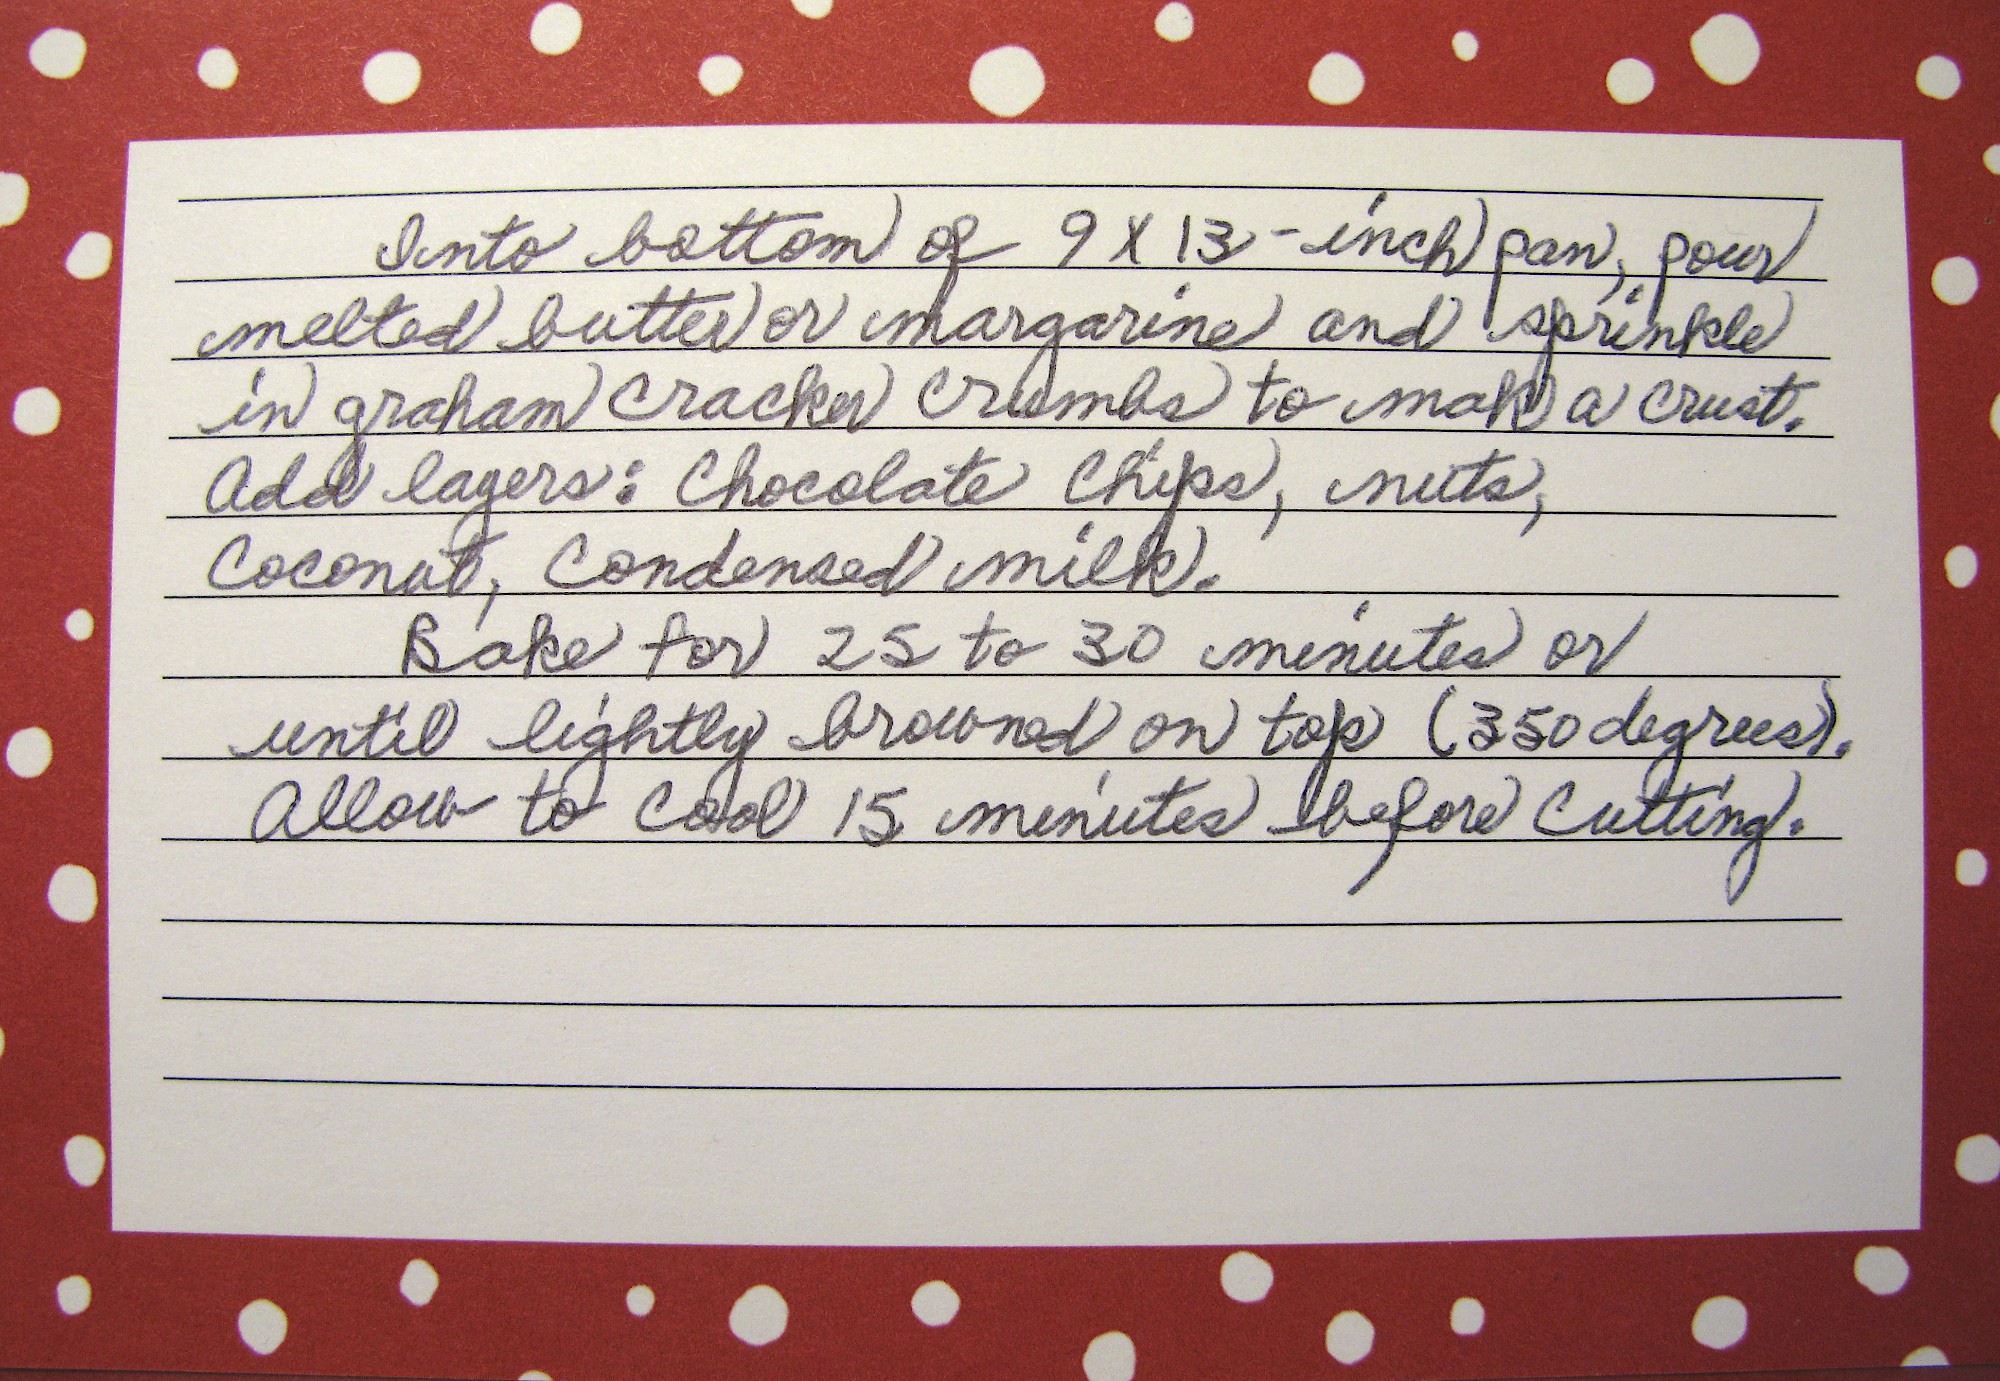 Into bottom of 9 X 13-inch pan, pour
melted butter or margarine and sprinkle
in graham cracker crumbs to make a crust.
Add layers: Chocolate Chips, nuts,
Coconut, Condensed milk.
Bake for 25 to 30 minutes or
until lightly browned on top (350 degrees).
Allow to cool 15 minutes before Cutting.